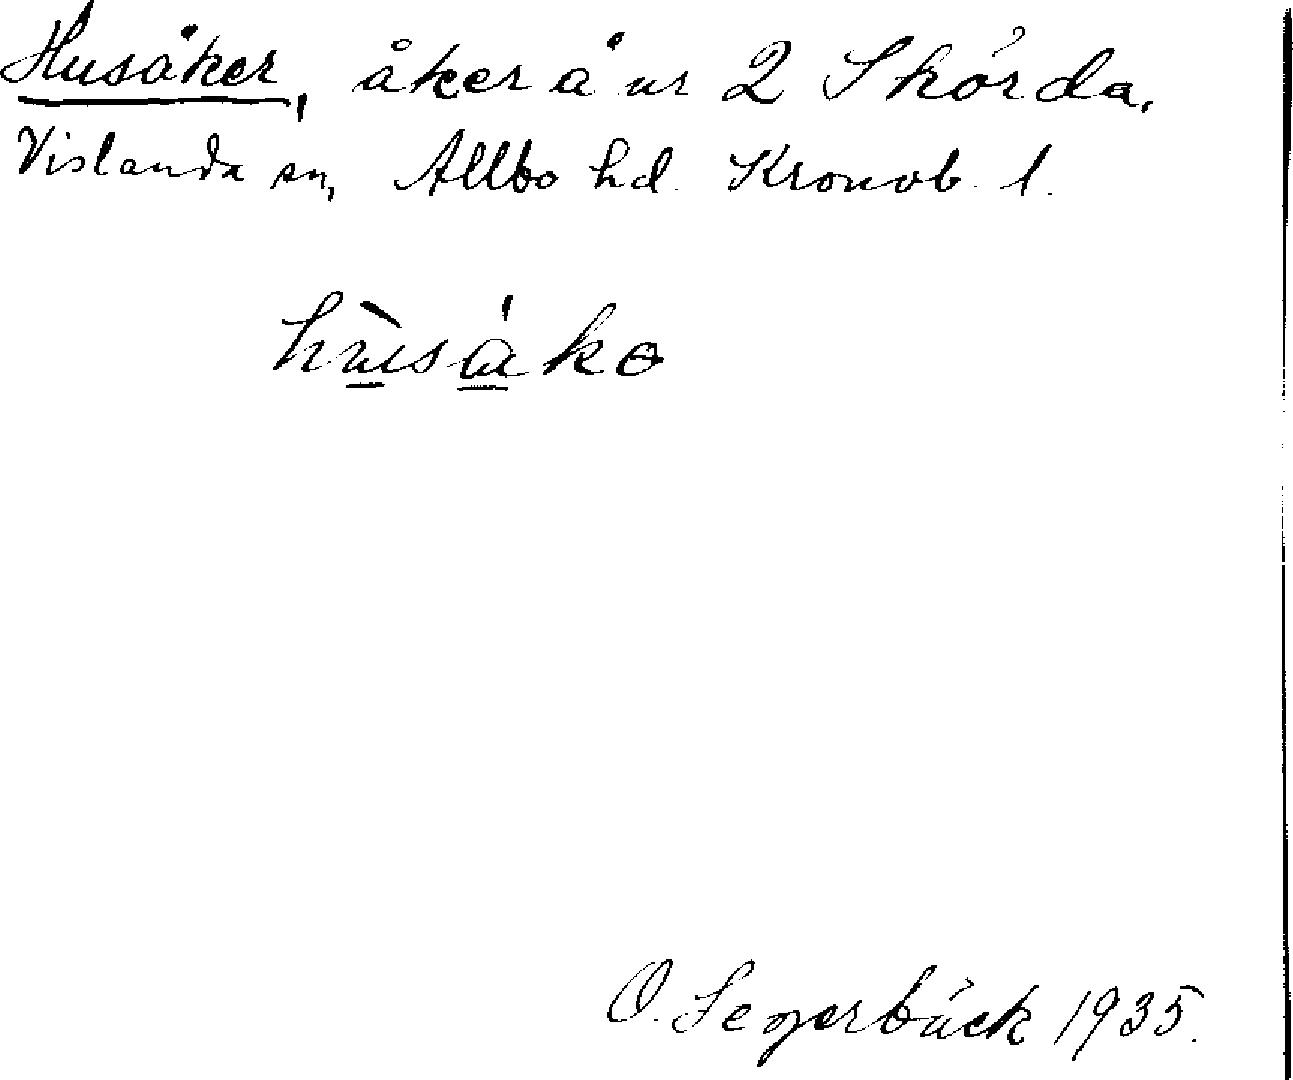 Husåker, åker å nr 2 Skörda.
Vislanda sn, Allbo hd. Kronob. l.
hùsåkɵ
O. Segerbäck 1935.